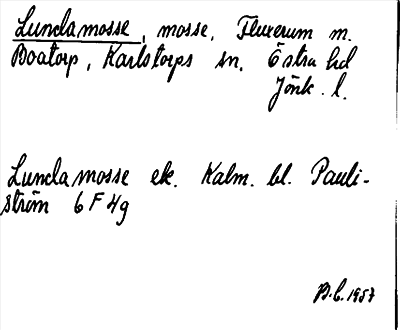 Lundamosse, mosse, Fluxerum m.
Boatorp, Karlstorps sn, Östra hd
Jönk. l.
Lundamosse ek. Kalm. bl. Pauli-
ström 6 F 4g
B.L. 1957